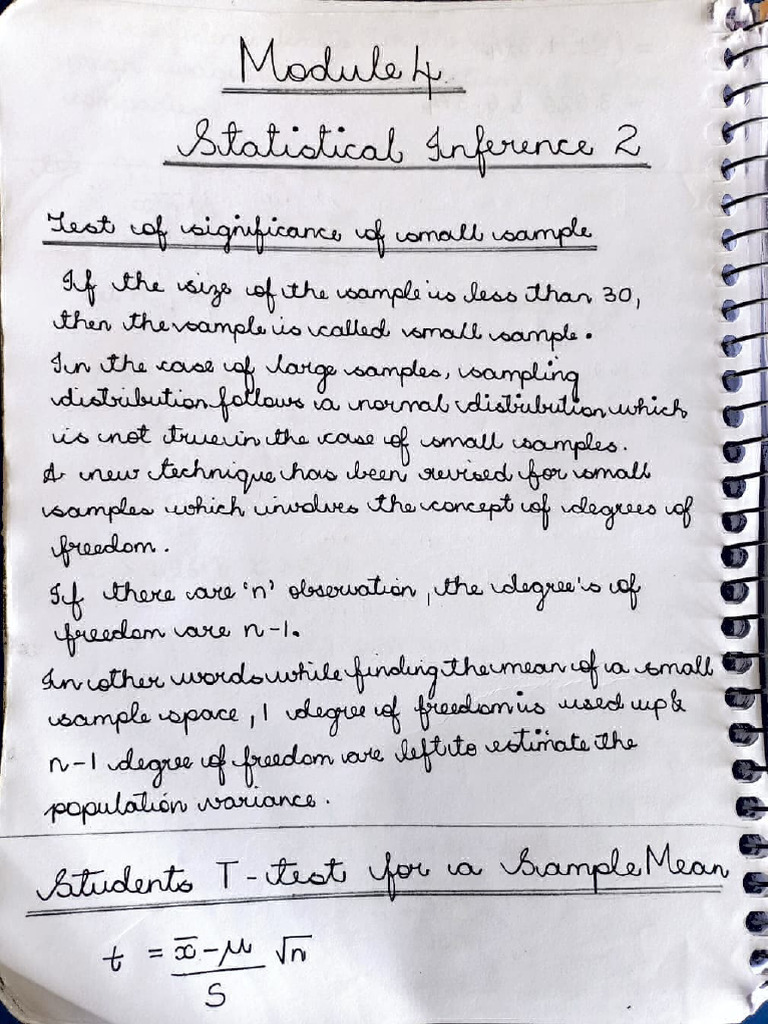 Module 4
Statistical Inference 2
Test of significance of small sample
If the size of the sample is less than 30,
then the sample is called small sample.
In the case of large samples, sampling
distribution follows a normal distribution which
is not true in the case of small samples.
A new technique has been revised for small
samples which involves the concept of degrees of
freedom.
If there are 'n' observation, the degree's of
freedom are n-1.
In other words while finding the mean of a small
sample space, 1 degree of freedom is used up &
n-1 degree of freedom are left to estimate the
population variance.
Students T-test for a Sample Mean
t = x̄ - μ √n
S